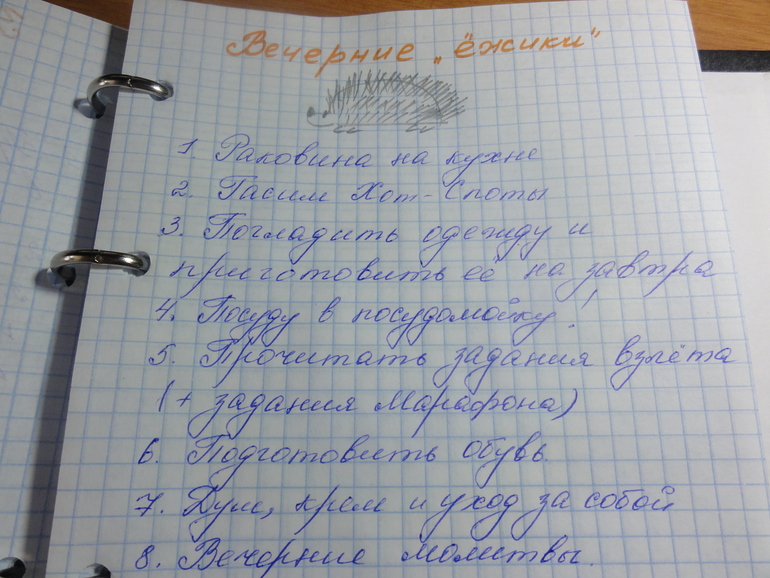 Вечерние „ёжики"
1. Раковина на кухне
2. Гасим Хот-Споты
3. Погладить одежду и
приготовить её на завтра
4. Посуду в посудомойку!
5. Прочитать задания взлёта
(+ задания Марафона)
6. Подготовить обувь.
7. Душ, крем и уход за собой
8. Вечерние молитвы.